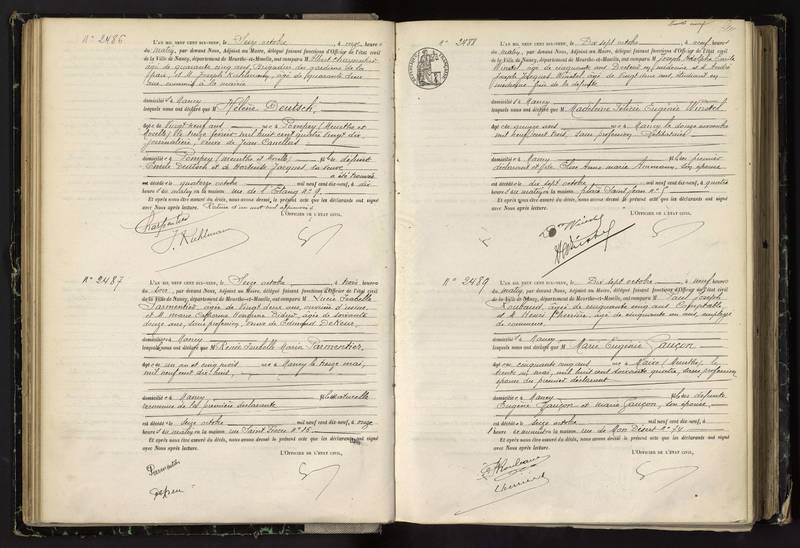 N° 2486
L'AN MIL NEUF CENT DIX-NEUF, le Seize octobre à onze heures
du matin, par devant Nous, Adjoint au Maire, délégué faisant fonctions d'Officier de l'état civil
de la Ville de Nancy, département de Meurthe-et-Moselle, ont comparu M Albert Charpentier
âgé de quarante cinq ans, brigadier des gardiens de la
paix, et M. Joseph Kuhlmann, âgé de quarante
ans à la mairie
domiciliés à Nancy
lesquels nous ont déclaré que M Hélène Deutsch,
âgée de vingt neuf ans née à Pompey (Meurthe et
Moselle) le treize février mil huit cent quatre vingt dix
journalière, veuve de Jean
domiciliée à Pompey (Meurthe et Moselle) fille de défunt
Emile Deutsch et de Hortense Jacques, sa veuve
a été trouvée
décédée le quatorze octobre mil neuf cent dix-neuf, à dix
heures du matin en la maison rue de l'Etang N° 9.
Et après nous être assuré du décès, nous avons dressé le présent acte que les déclarants ont signé
avec Nous après lecture.
L'OFFICIER DE L'ÉTAT CIVIL,
Charpentier
J. Kuhlman
N° 2487
L'AN MIL NEUF CENT DIX-NEUF, le Seize octobre à trois heures
du soir, par devant Nous, Adjoint au Maire, délégué faisant fonctions d'Officier de l'état civil
de la Ville de Nancy, département de Meurthe-et-Moselle, ont comparu M Lucie Isabelle
Parmentier, âgée de vingt deux ans, ouvrière d'usine,
et M. marie Catherine Honorine Didier, âgée de soixante
douze ans, sans profession, veuve de Edmond
domiciliées à Nancy
lesquels nous ont déclaré que M Renée Isabelle Maria Parmentier,
âgée de un an et cinq mois née à Nancy le treize mai,
mil neuf cent dix huit,
domiciliée à Nancy fille naturelle
reconnue de la première déclarante
est décédée le seize octobre mil neuf cent dix-neuf, à onze
heures du matin en la maison rue Saint N° 15
Et après nous être assuré du décès, nous avons dressé le présent acte que les déclarants ont signé
avec Nous après lecture.
L'OFFICIER DE L'ÉTAT CIVIL,
Parmentier
N° 2488
L'AN MIL NEUF CENT DIX-NEUF, le Dix sept octobre à neuf heures
du matin, par devant Nous, Adjoint au Maire, délégué faisant fonctions d'Officier de l'état civil
de la Ville de Nancy, département de Meurthe-et-Moselle, ont comparu M Joseph Adolphe Emile
âgé de cinquante ans Docteur en médecine et M. André
Joseph Jacques âgé de vingt deux ans, étudiant en
médecine frère de la défunte
domiciliés à Nancy
lesquels nous ont déclaré que M Madeleine Valérie Eugénie
âgée de quinze ans née à Nancy le douze novembre
mil neuf cent trois, sans profession, célibataire
domiciliée à Nancy fille du premier
déclarant et de Elise Anne marie Ammann, son épouse
est décédée le dix sept octobre mil neuf cent dix-neuf, à quatre
heures du matin en la maison place Saint Jean N° 5
Et après nous être assuré du décès, nous avons dressé le présent acte que les déclarants ont signé
avec Nous après lecture.
L'OFFICIER DE L'ÉTAT CIVIL,
N° 2489
L'AN MIL NEUF CENT DIX-NEUF, le Dix sept octobre à neuf heures
du matin, par devant Nous, Adjoint au Maire, délégué faisant fonctions d'Officier de l'état civil
de la Ville de Nancy, département de Meurthe-et-Moselle, ont comparu M Paul Joseph
âgé de cinquante cinq ans Comptable
et M. Henri âgé de cinquante un ans, employé
de commerce
domiciliés à Nancy
lesquels nous ont déclaré que M Marie Eugénie Gauçon,
âgée de cinquante cinq ans née à (Meurthe), le
trente un mai, mil huit cent soixante quatre, sans profession,
épouse du premier déclarant
domiciliée à Nancy fille de défunts
Eugène Gauçon et marie Gauçon, son épouse,
est décédée le seize octobre mil neuf cent dix-neuf, à
heures du matin en la maison rue de Mon Désert N° 74
Et après nous être assuré du décès, nous avons dressé le présent acte que les déclarants ont signé
avec Nous après lecture.
L'OFFICIER DE L'ÉTAT CIVIL,